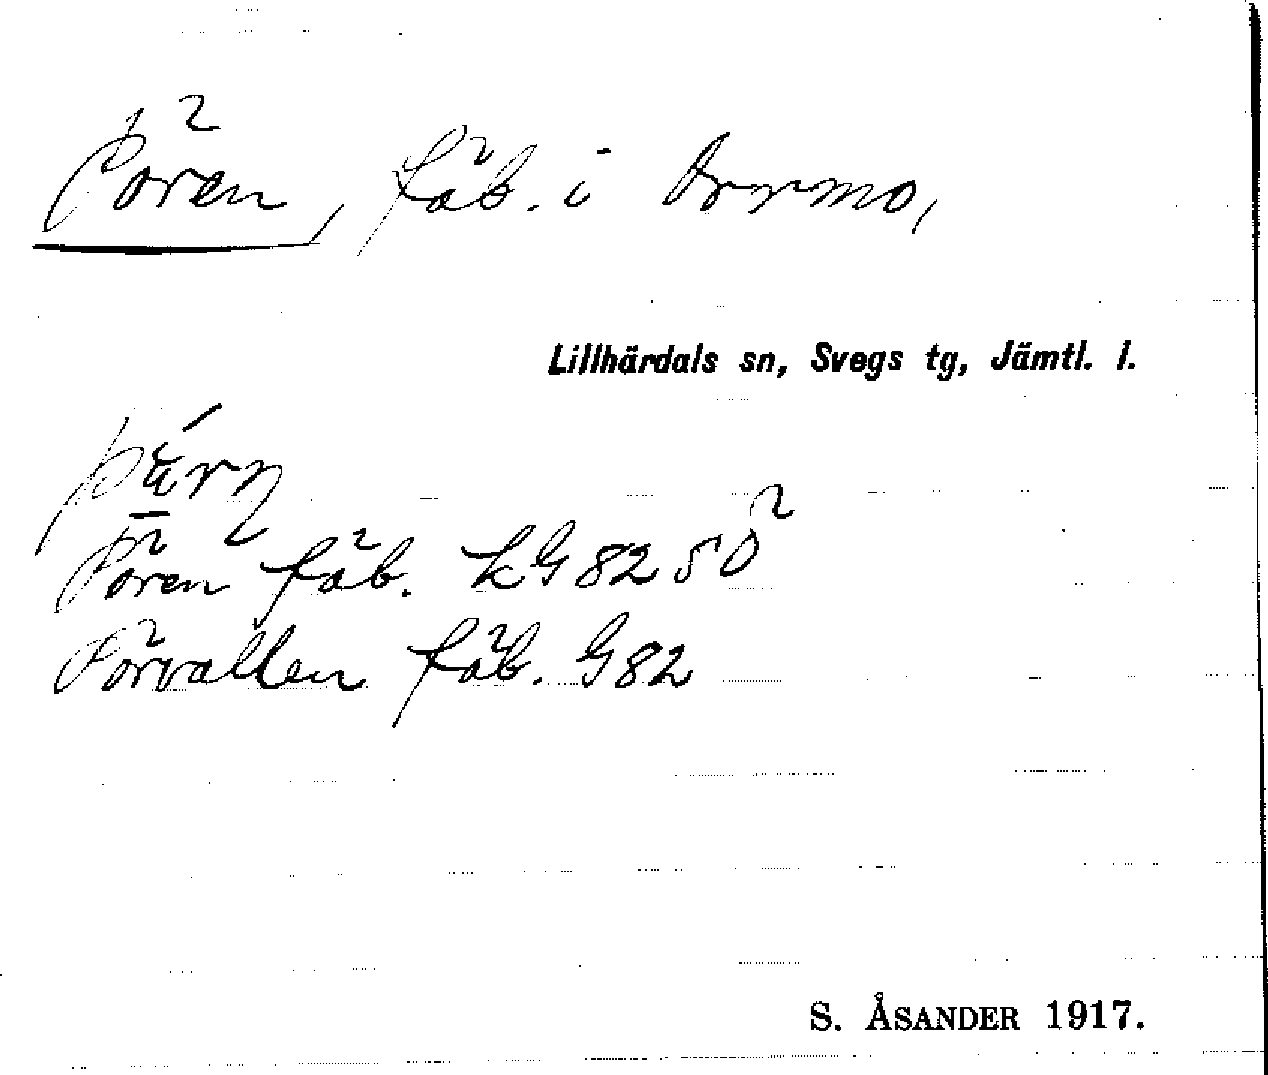 Pören, fäb. i Orrmo,
Lillhärdals sn, Svegs tg, Jämtl. l.
Pören fäb. kG82 SÖ
Pörvallen fäb. G82
S. ÅSANDER 1917.